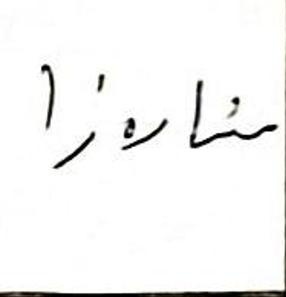 ستاره زا